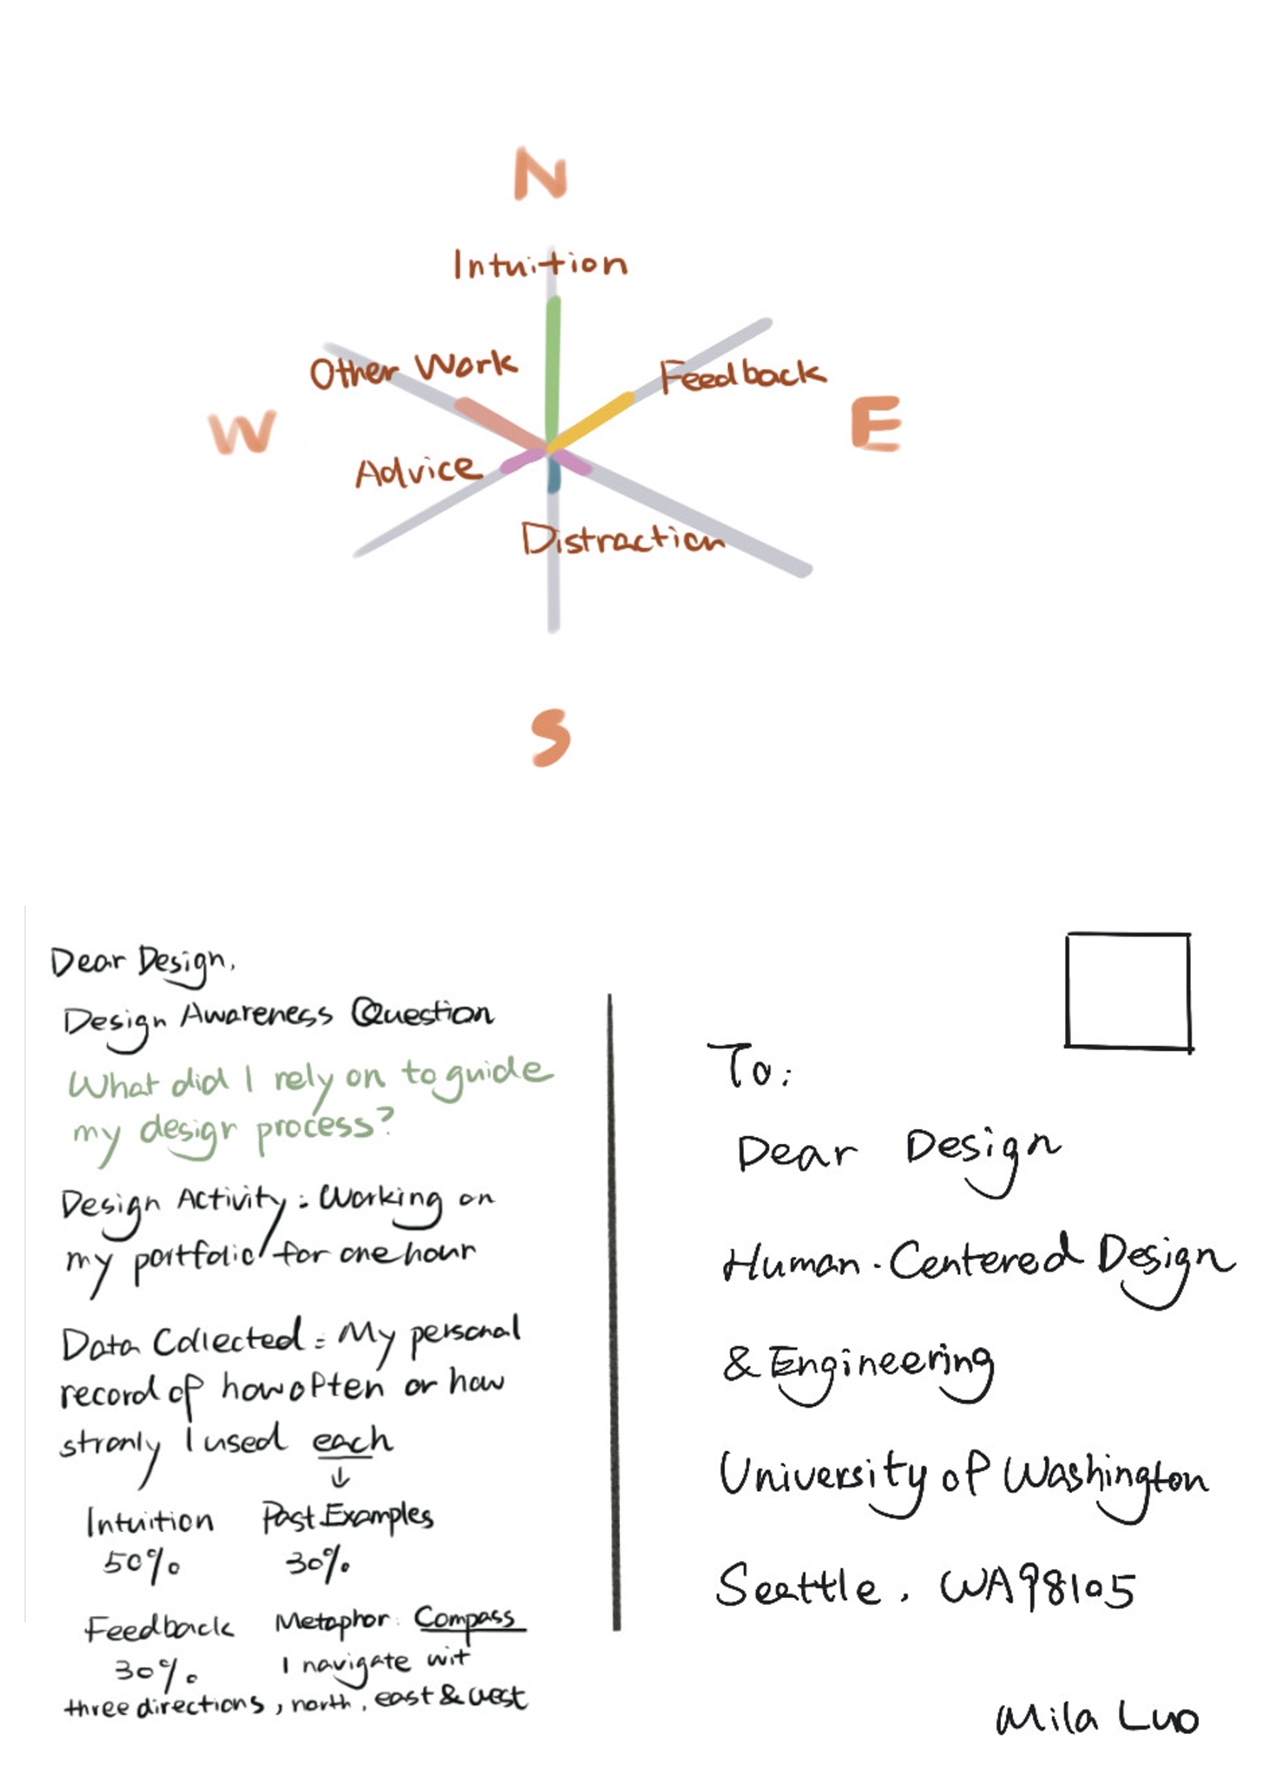 N
Intuition
Other Work
Feedback
W
E
Advice
Distraction
S
Dear Design,
Design Awareness Question
What did I rely on to guide
my design process?
Design Activity: Working on
my portfolio for one hour
Data Collected: My personal
record of how often or how
stronly I used each
↓
Intuition Past Examples
50% 30%
Feedback Metaphor: Compass
30% I navigate wit
three directions, north, east & west
To:
Dear Design
Human-Centered Design
& Engineering
University of Washington
Seattle, WA 98105
Mila Luo